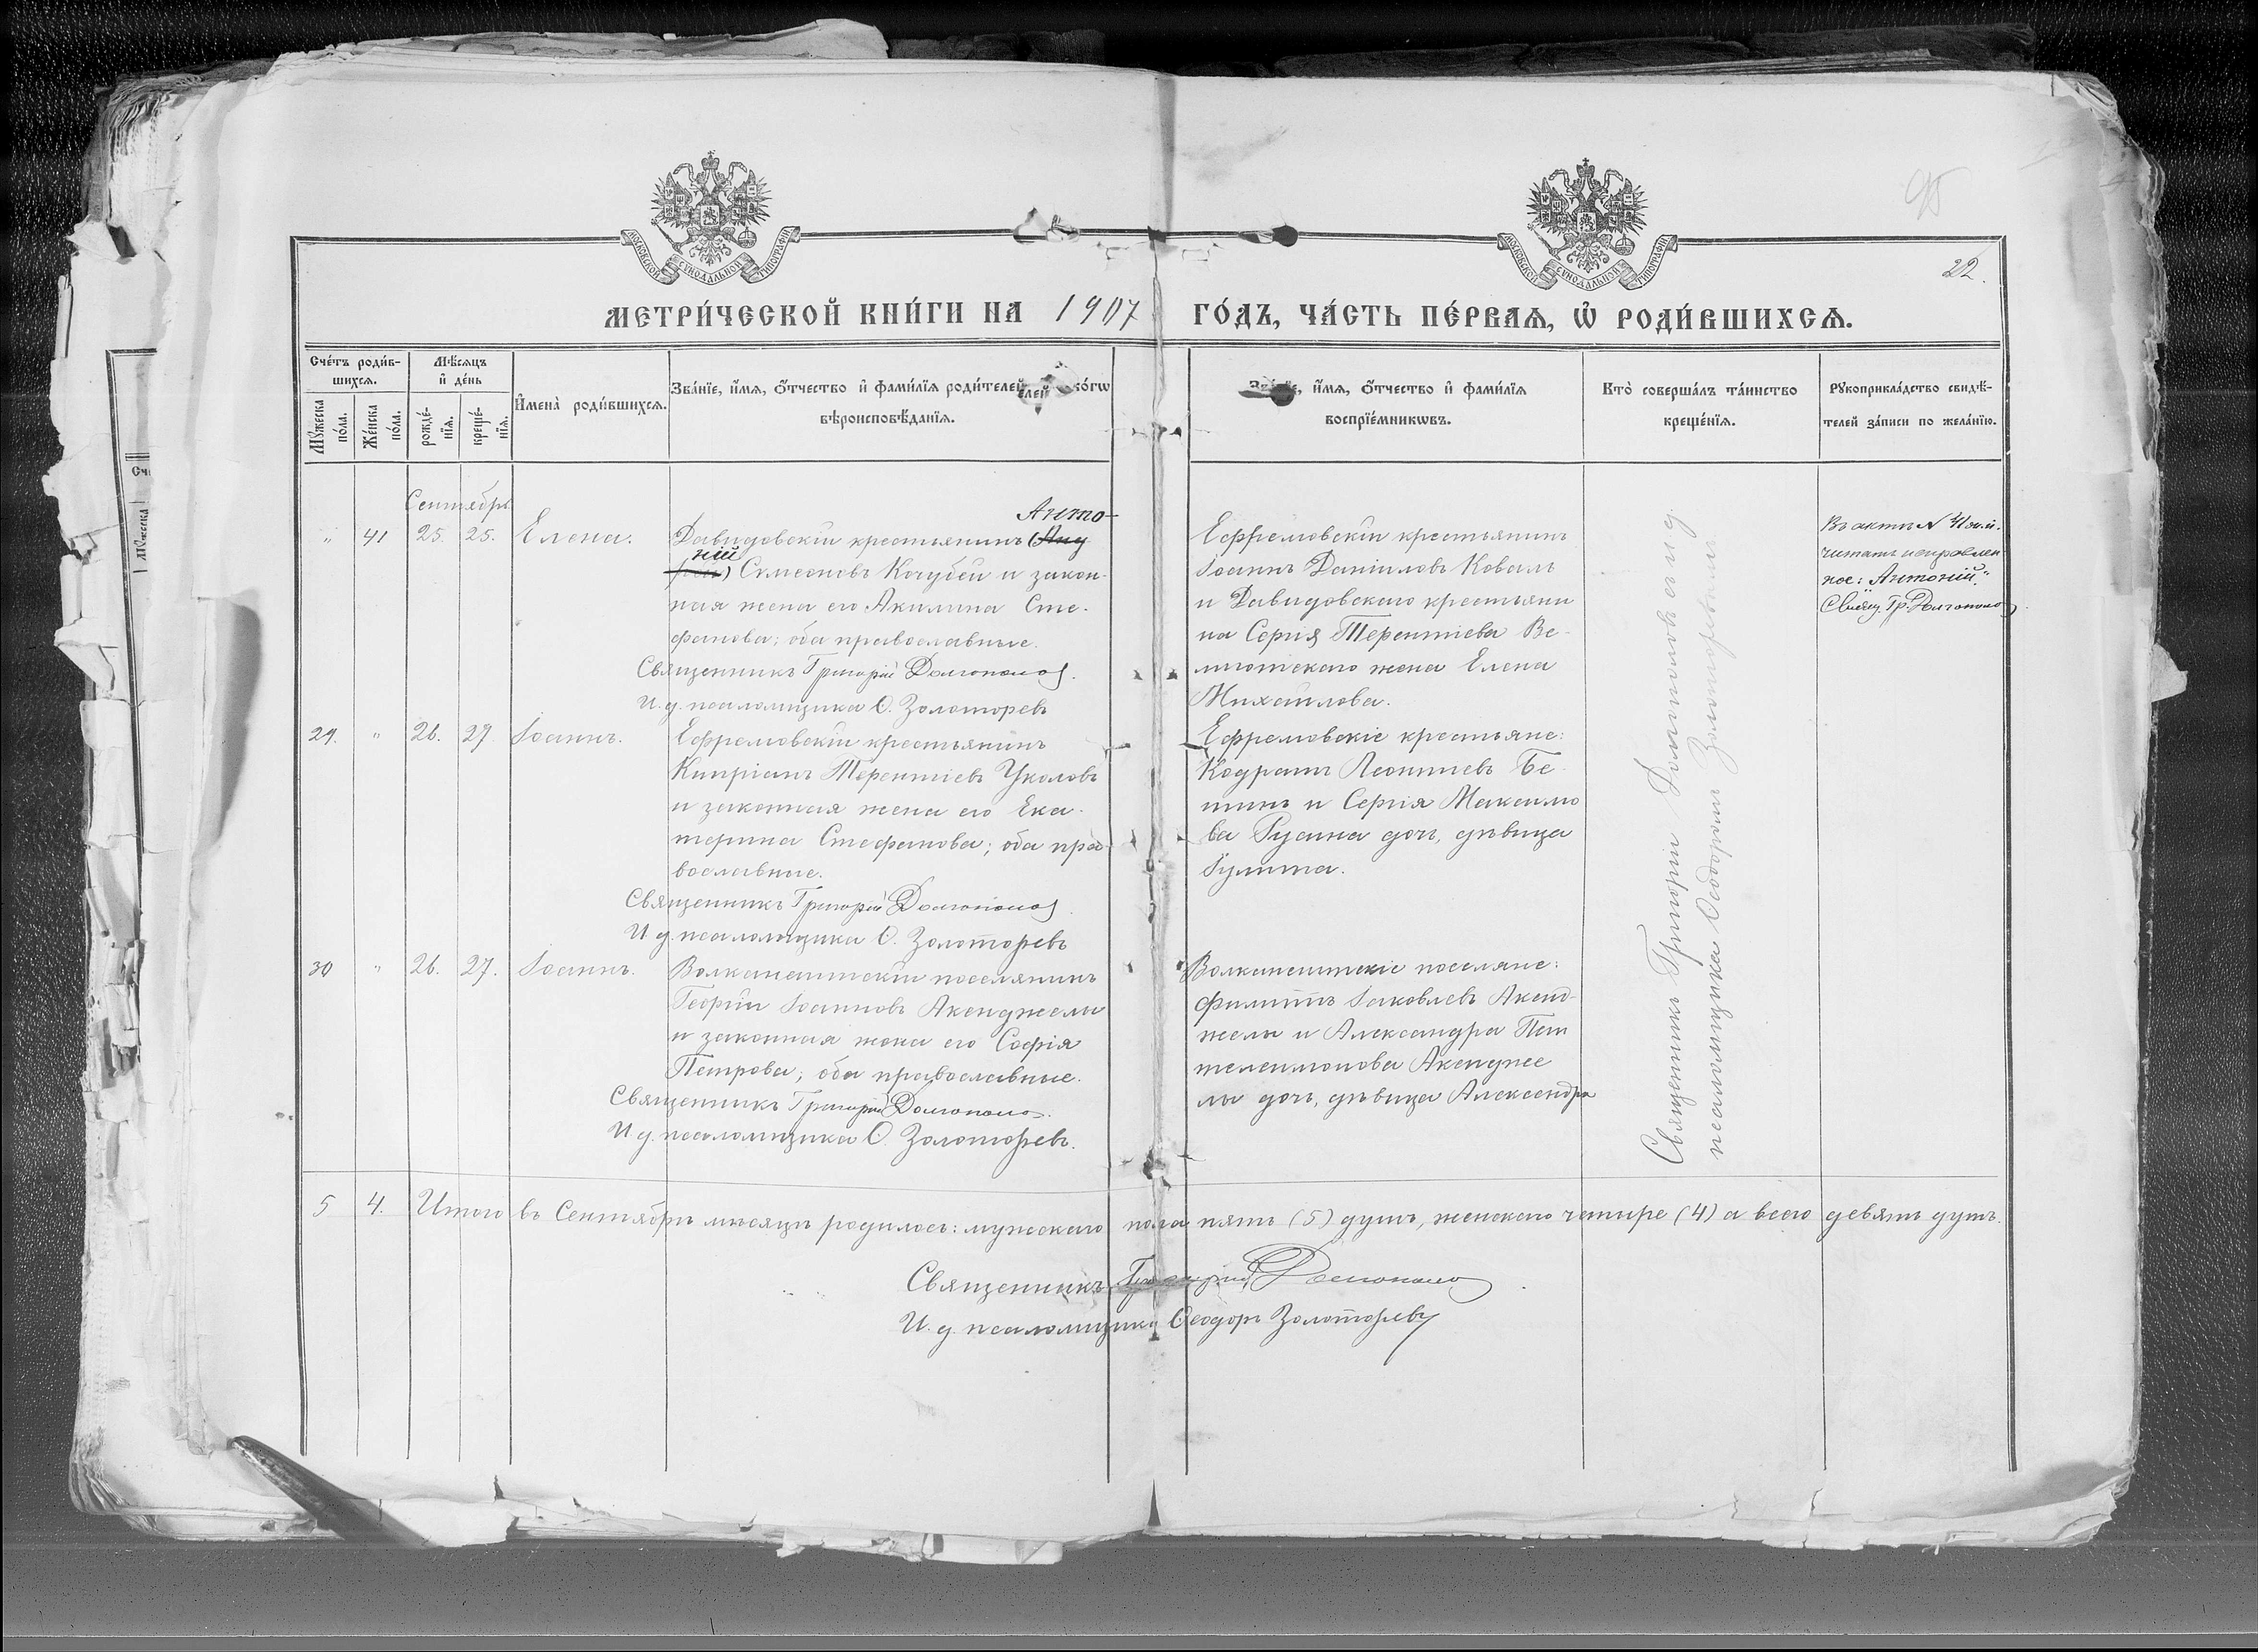 95
22.
МОСКОВСКОЙ СѴНОДАЛЬНОЙ ТИПОГРАФІИ
МОСКОВСКОЙ СѴНОДАЛЬНОЙ ТИПОГРАФІИ
МЕТРИ́ЧЕСКОЙ КНИ́ГИ НА 1907 ГО́ДЪ, ЧА́СТЬ ПЕ́РВАѦ, Ѡ҆ РОДИ́ВШИХСѦ.
Сче́тъ роди́в-
шихсѧ.
Мꙋ́жеска
по́ла.
Же́нска
по́ла.
Мѣ́сѧцъ
и҆ де́нь
рожде́-
нїѧ.
креще́-
нїѧ.
И҆мена̀ роди́вшихсѧ.
Зва́нїе, и҆́мѧ, ѻ҆́тчество и҆ фами́лїѧ роди́телей
вѣроисповѣ́данїѧ.
и҆́мѧ, ѻ҆́тчество и҆ фами́лїѧ
воспрїе́мникѡвъ.
Кто̀ соверша́лъ та́инство
креще́нїѧ.
Рꙋкоприкла́дство свидѣ́-
телей за́писи по жела́нїю.
Сентябрь
" 41 25. 25. Елена.
Анто-
Давидовскій крестьянинъ (Анд
ній
) Симеоновъ Кочубей и закон-
ная жена его Акилина Сте-
фанова; оба православные.
Священникъ Григорій Долгополов.
И. д. псаломщика Ѳ. Золоторевъ
Ефремовскій крестьянинъ
Іоаннъ Даніиловъ Коваль
и Давидовскаго крестьяни
на Сергія Терентіева Ве-
лиотскаго жена Елена
Михайлова.
Въ актѣ № 41 жен.
читать исправлен
ное: "Антоній."
Свящ. Гр. Долгополов
29. " 26. 27. Іоаннъ.
Ефремовскій крестьянинъ
Кипріанъ Терентіевъ Уколовъ
и законная жена его Ека-
терина Стефанова; оба пра
вославные.
Священникъ Григорій Долгополов.
И. д. псаломщика Ѳ. Золоторевъ
Ефремовскіе крестьяне:
Кодратъ Леонтіевъ Бе-
тинъ и Сергія Максимо
ва Русина дочь, дѣвица
Іулита.
30 " 26. 27. Іоаннъ.
Волканештскій поселянинъ
Георгій Іоанновъ Акенджелы
и законная жена его Софія
Петрова; оба православные.
Священникъ Григорій Долгополов.
И. д. псаломщика Ѳ. Золоторевъ.
Волканештскіе поселяне:
Филиппъ Іаковлевъ Акенд-
желы и Александра Пан
телеимонова Акендже
лы дочь, дѣвица Александра
Священникъ Григорій Долгополов и и. д.
псаломщика Ѳеодоръ Золоторевъ
5 4. Итого въ Сентябрѣ мѣсяцѣ родилось: мужескаго пола пять (5) душъ, женскаго четыре (4) а всего девять душъ.
Священникъ Григорій Долгополов
И. д. псаломщика Ѳеодоръ Золоторевъ